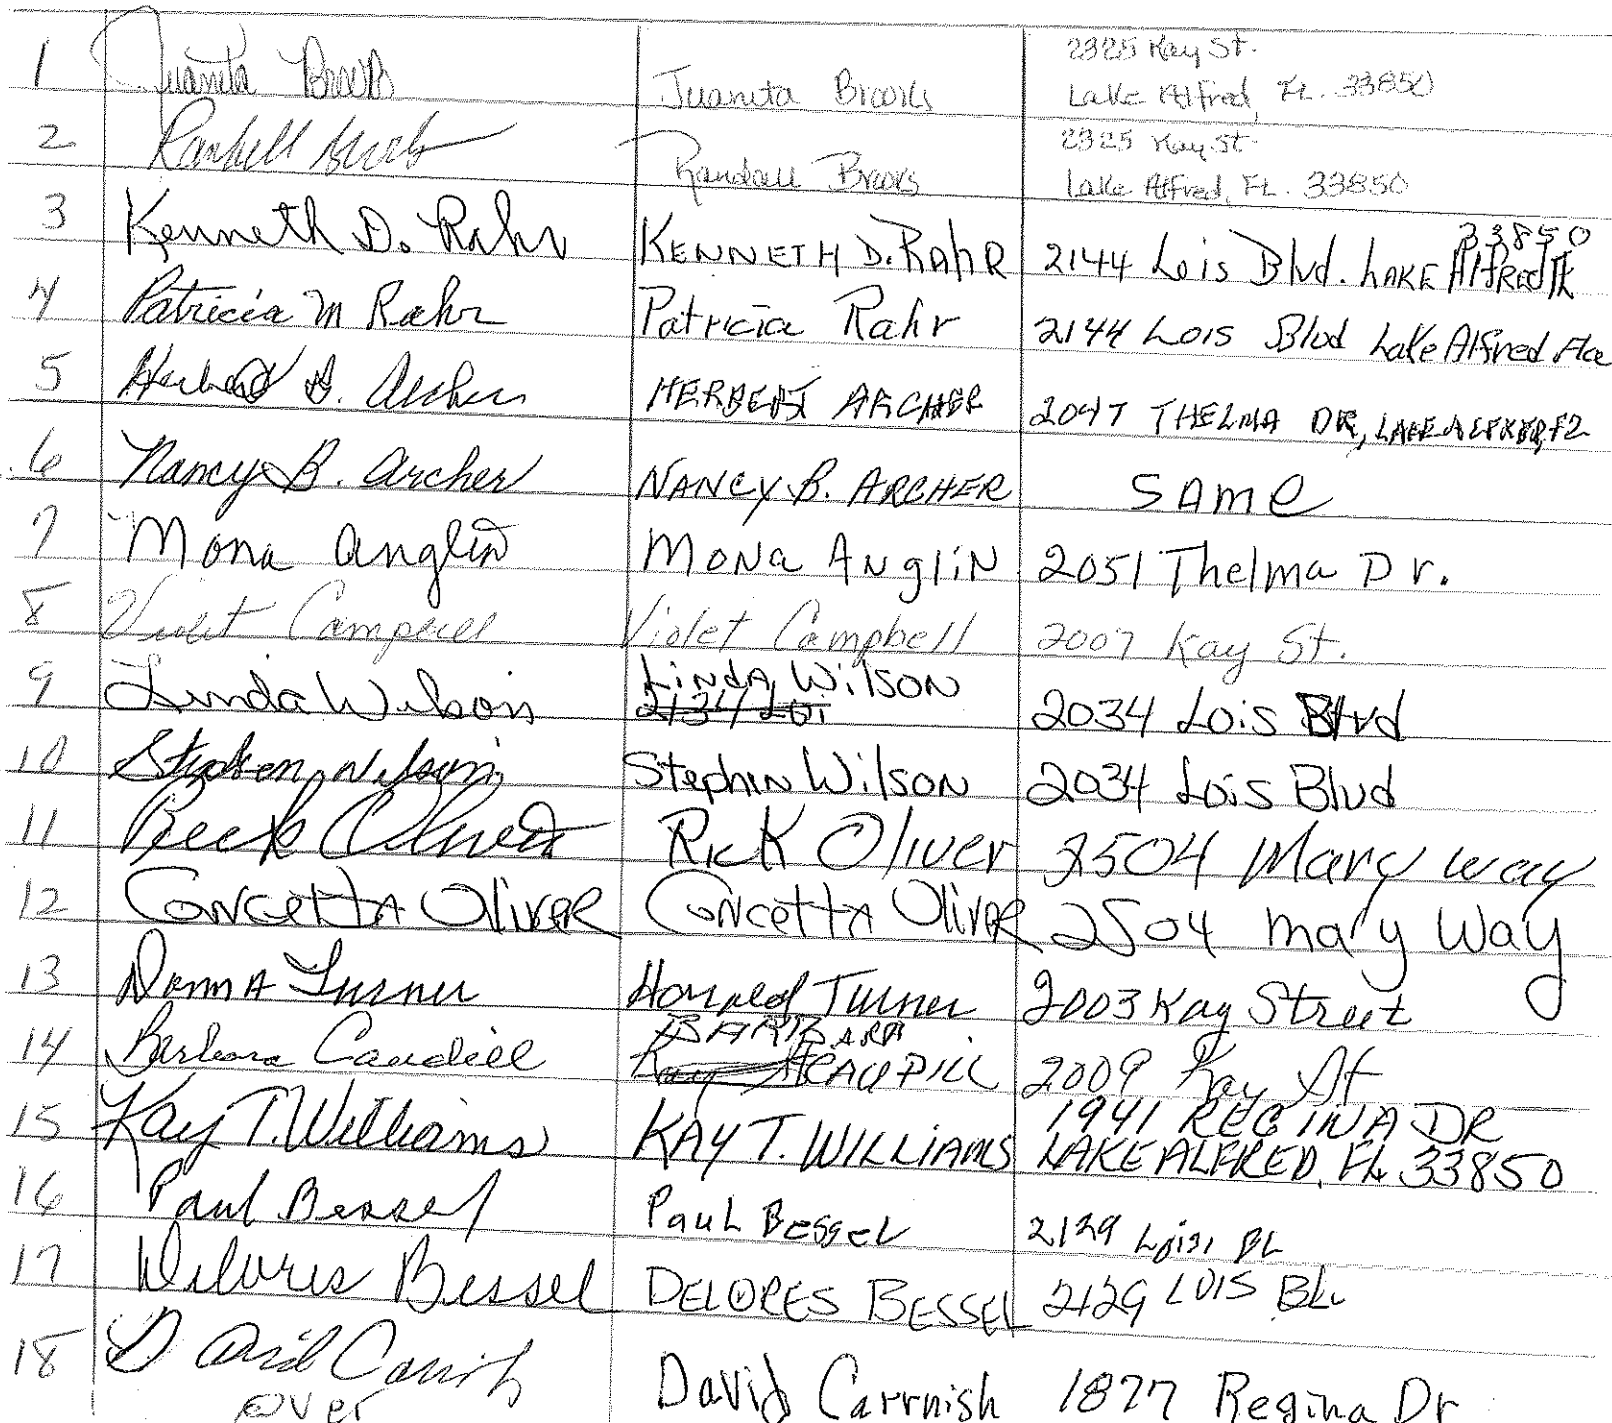 1 Juanita Brooks Juanita Brooks 2325 Kay St.
Lake Alfred, FL. 33850
2 Randall Brooks Randall Brooks 2325 Kay St.
Lake Alfred, FL. 33850
3 Kenneth D. Rahr KENNETH D. RAHR 2144 Lois Blvd. LAKE Alfred FL 33850
4 Patricia M Rahr Patricia Rahr 2144 Lois Blvd Lake Alfred Fla
5 Herbert Archer HERBERT ARCHER 2047 THELMA DR, LAKE ALFRED, FL
6 Nancy B. Archer NANCY B. ARCHER SAME
7 Mona Anglin MONA ANGLIN 2051 Thelma Dr.
8 Violet Campbell Violet Campbell 2007 Kay St.
9 Linda Wilson LINDA WILSON 2034 Lois Blvd
2134 Loi
10 Stephen Wilson Stephen Wilson 2034 Lois Blvd
11 Rick Oliver Rick Oliver 2504 Mary Way
12 Concetta Oliver Concetta Oliver 2504 Mary Way
13 Donna Turner Turner 2003 Kay Street
14 Barbara Caudill BARBARA 2009 Kay St
Kay CAUDILL
15 Kay T. Williams KAY T. WILLIAMS 1941 REGINA DR
LAKE ALFRED, FL 33850
16 Paul Bessel Paul Bessel 2129 BL
17 Delores Bessel DELORES BESSEL 2129 LOIS BL.
18 David Carrnish David Carrnish 1877 Regina Dr
over